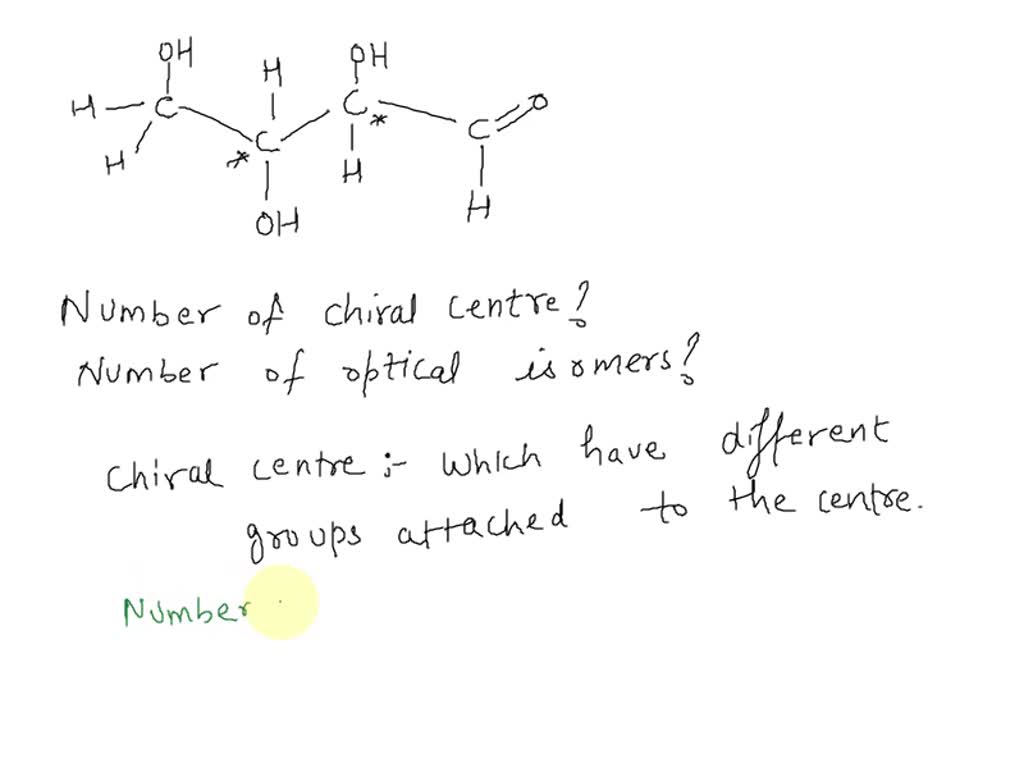 OH
H
OH
H
C
C
O
H
C
*
C
*
H
H
OH
H
Number of chiral centre?
Number of optical isomers?
chiral centre :- which have different
groups attached to the centre.
Number